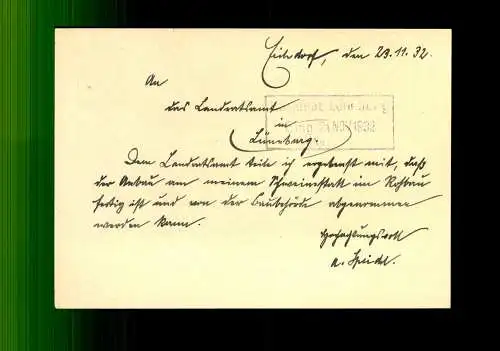 den 23.11.32.
An
das Landratsamt
in
Lüneburg.
Dem Landratsamt teile ich ergebenst mit, daß
der Anbau am meinem Schweinestall im Rohbau
fertig ist und von der Baubehörde abgenommen
werden kann.
Hochachtungsvoll